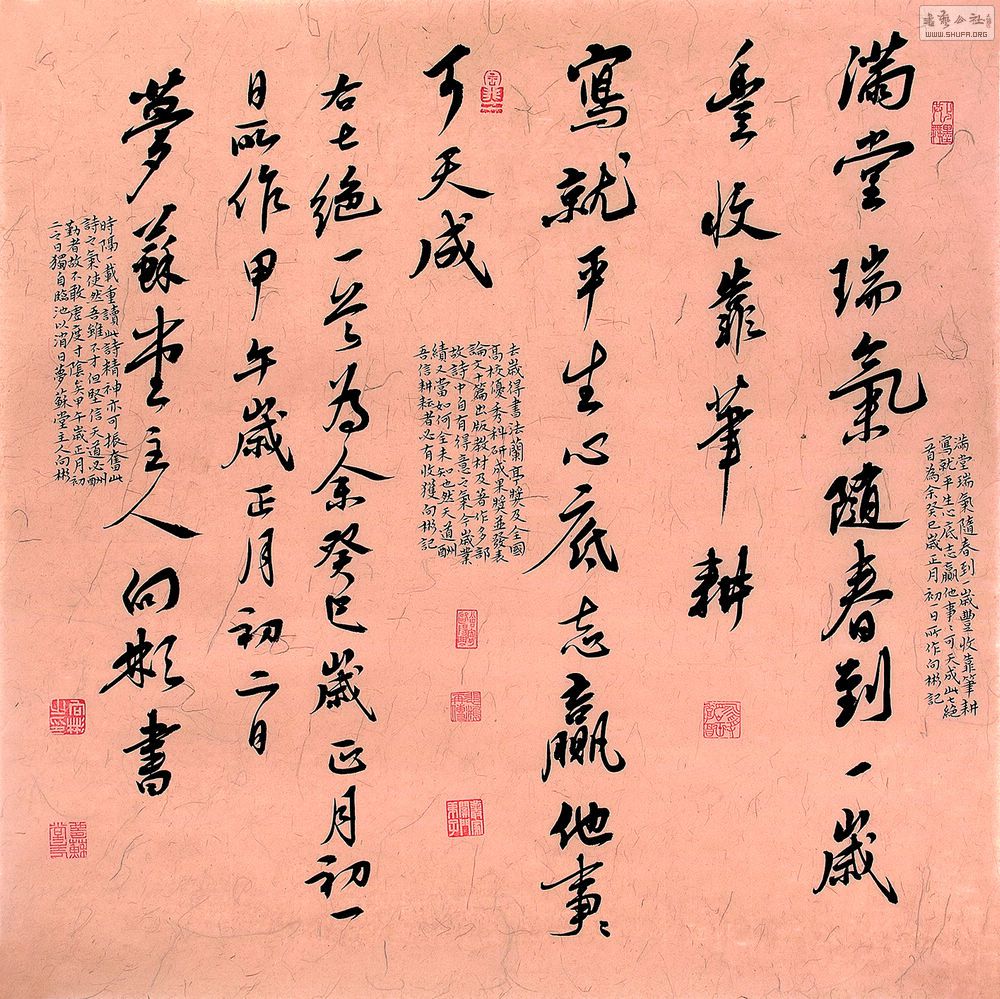 滿堂瑞氣隨春到一歲
豐收靠筆耕
寫就平生心底志贏他事〻
可天成
右七絕一首為余癸巳歲正月初一
日所作甲午歲正月初二日
夢蘇堂主人向彬書
滿堂瑞氣隨春到一歲豐收靠筆耕
寫就平生心底志贏他事〻可天成此七絕
一首為余癸巳歲正月初一日所作向彬記
去歲得書法蘭亭獎及全國
高校優秀科研成果獎並發表
論文十篇出版教材及著作多部
故詩中自有得意之氣今歲業
績又當如何全未知也然天道酬
吾信耕耘者必有收獲向彬記
時隔一載重讀此詩精神亦可振奮此
詩之氣使然吾雖不才但堅信天道必酬
勤者故不敢虛度寸陰矣甲午歲正月初
二之日獨自臨池以消日夢蘇堂主人向彬
書藝公社
WWW.SHUFA.ORG